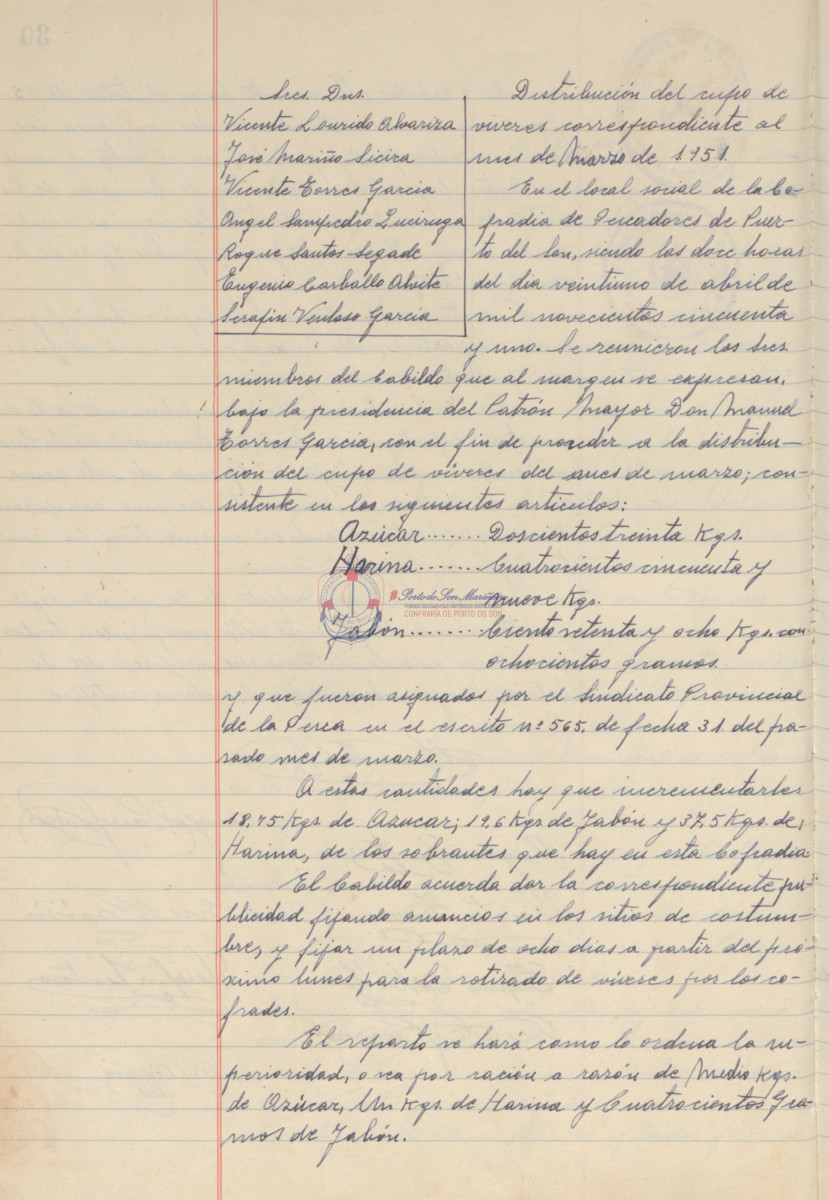 Sres. Dns.
Vicente Lourido Alvariza
José Mariño Sieira
Vicente Torres Garcia
Angel Sampedro Luciruga
Roque Santos Segade
Eugenio Carballo Alvite
Serafin Ventoso Garcia
Distribución del cupo de
viveres correspondiente al
mes de Marzo de 1.951.
En el local social de la Co-
fradia de Pescadores de Puer-
to del Son, siendo las doce horas
del dia veintiuno de abril de
mil novecientos cincuenta
y uno. Se reunieron los sres.
miembros del Cabildo que al margen se expresan,
bajo la presidencia del Patrón Mayor Don Manuel
Torres Garcia, con el fin de proceder a la distribu-
ción del cupo de víveres del mes de marzo; con-
sistente en los siguientes articulos:
Azúcar ....... Doscientos treinta Kgs.
Harina ....... Cuatrocientos cincuenta y
nueve Kgs.
Jabón ....... Ciento setenta y ocho Kgs. con
ochocientos gramos.
y que fueron asignados por el Sindicato Provincial
de la Pesca en el escrito nº 565, de fecha 31 del pa-
sado mes de marzo.
A estas cantidades hay que incrementarles
18,75 Kgs. de Azucar; 19,6 Kgs de Jabón y 37,5 Kgs. de,
Harina, de los sobrantes que hay en esta Cofradia.
El Cabildo acuerda dar la correspondiente pu-
blicidad fijando anuncios en los sitios de costum-
bre, y fijar un plazo de ocho dias a partir del pró-
ximo lunes para la retirado de víveres por los co-
frades.
El reparto se hará como lo ordena la su-
perioridad, o sea por ración a razón de Medio Kgs.
de Azúcar, Un Kgs. de Harina y Cuatrocientos Gra-
mos de Jabón.
#PortodeSonMariñeiro
CONFRARIA DE PORTO DO SON